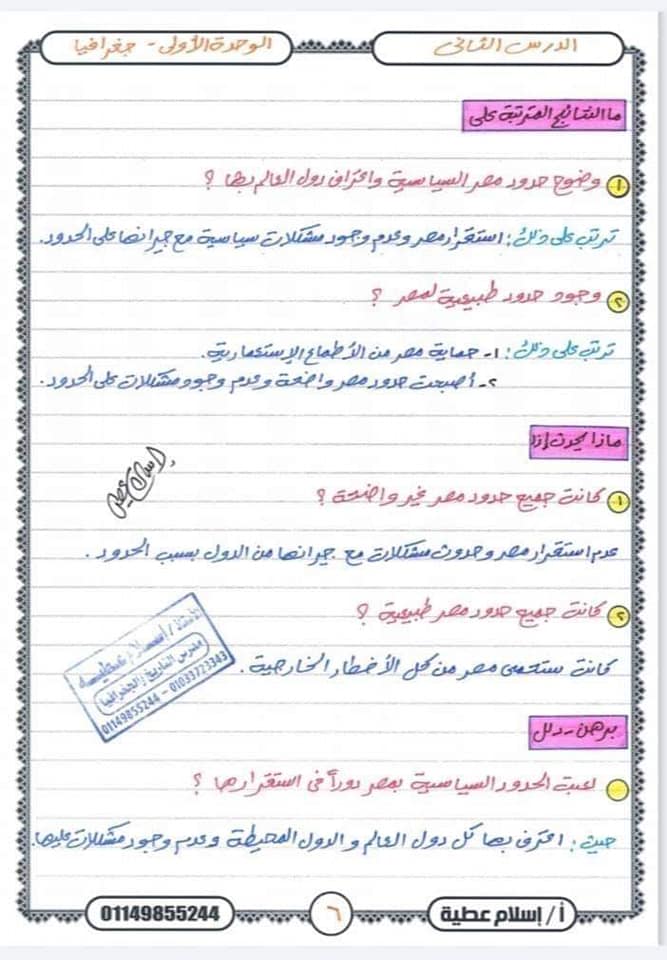 الدرس الثانى
الوحدة الأولى - جغرافيا
ما النتائج المترتبة على
١ وضوح حدود مصر السياسية واعتراف دول العالم بها ؟
ترتب على ذلك : استقرار مصر وعدم وجود مشكلات سياسية مع جيرانها على الحدود.
٢ وجود حدود طبيعية لمصر ؟
ترتب على ذلك : ١- حماية مصر من الأطماع الاستعمارية.
٢- أصبحت حدود مصر واضحة وعدم وجود مشكلات على الحدود.
ماذا يحدث إذا
١ كانت جميع حدود مصر غير واضحة ؟
إسلام عطية
عدم استقرار مصر وحدوث مشكلات مع جيرانها من الدول بسبب الحدود .
٢ كانت جميع حدود مصر طبيعية ؟
كانت ستحمى مصر من كل الأخطار الخارجية .
الأستاذ / إسلام عطية
مدرس التاريخ والجغرافيا
01149855244 - 01033723343
برهن - دلل
لعبت الحدود السياسية بمصر دوراً فى استقرارها ؟
حيث : اعترف بها كل دول العالم والدول المحيطة وعدم وجود مشكلات عليها.
أ / إسلام عطية
٦
01149855244